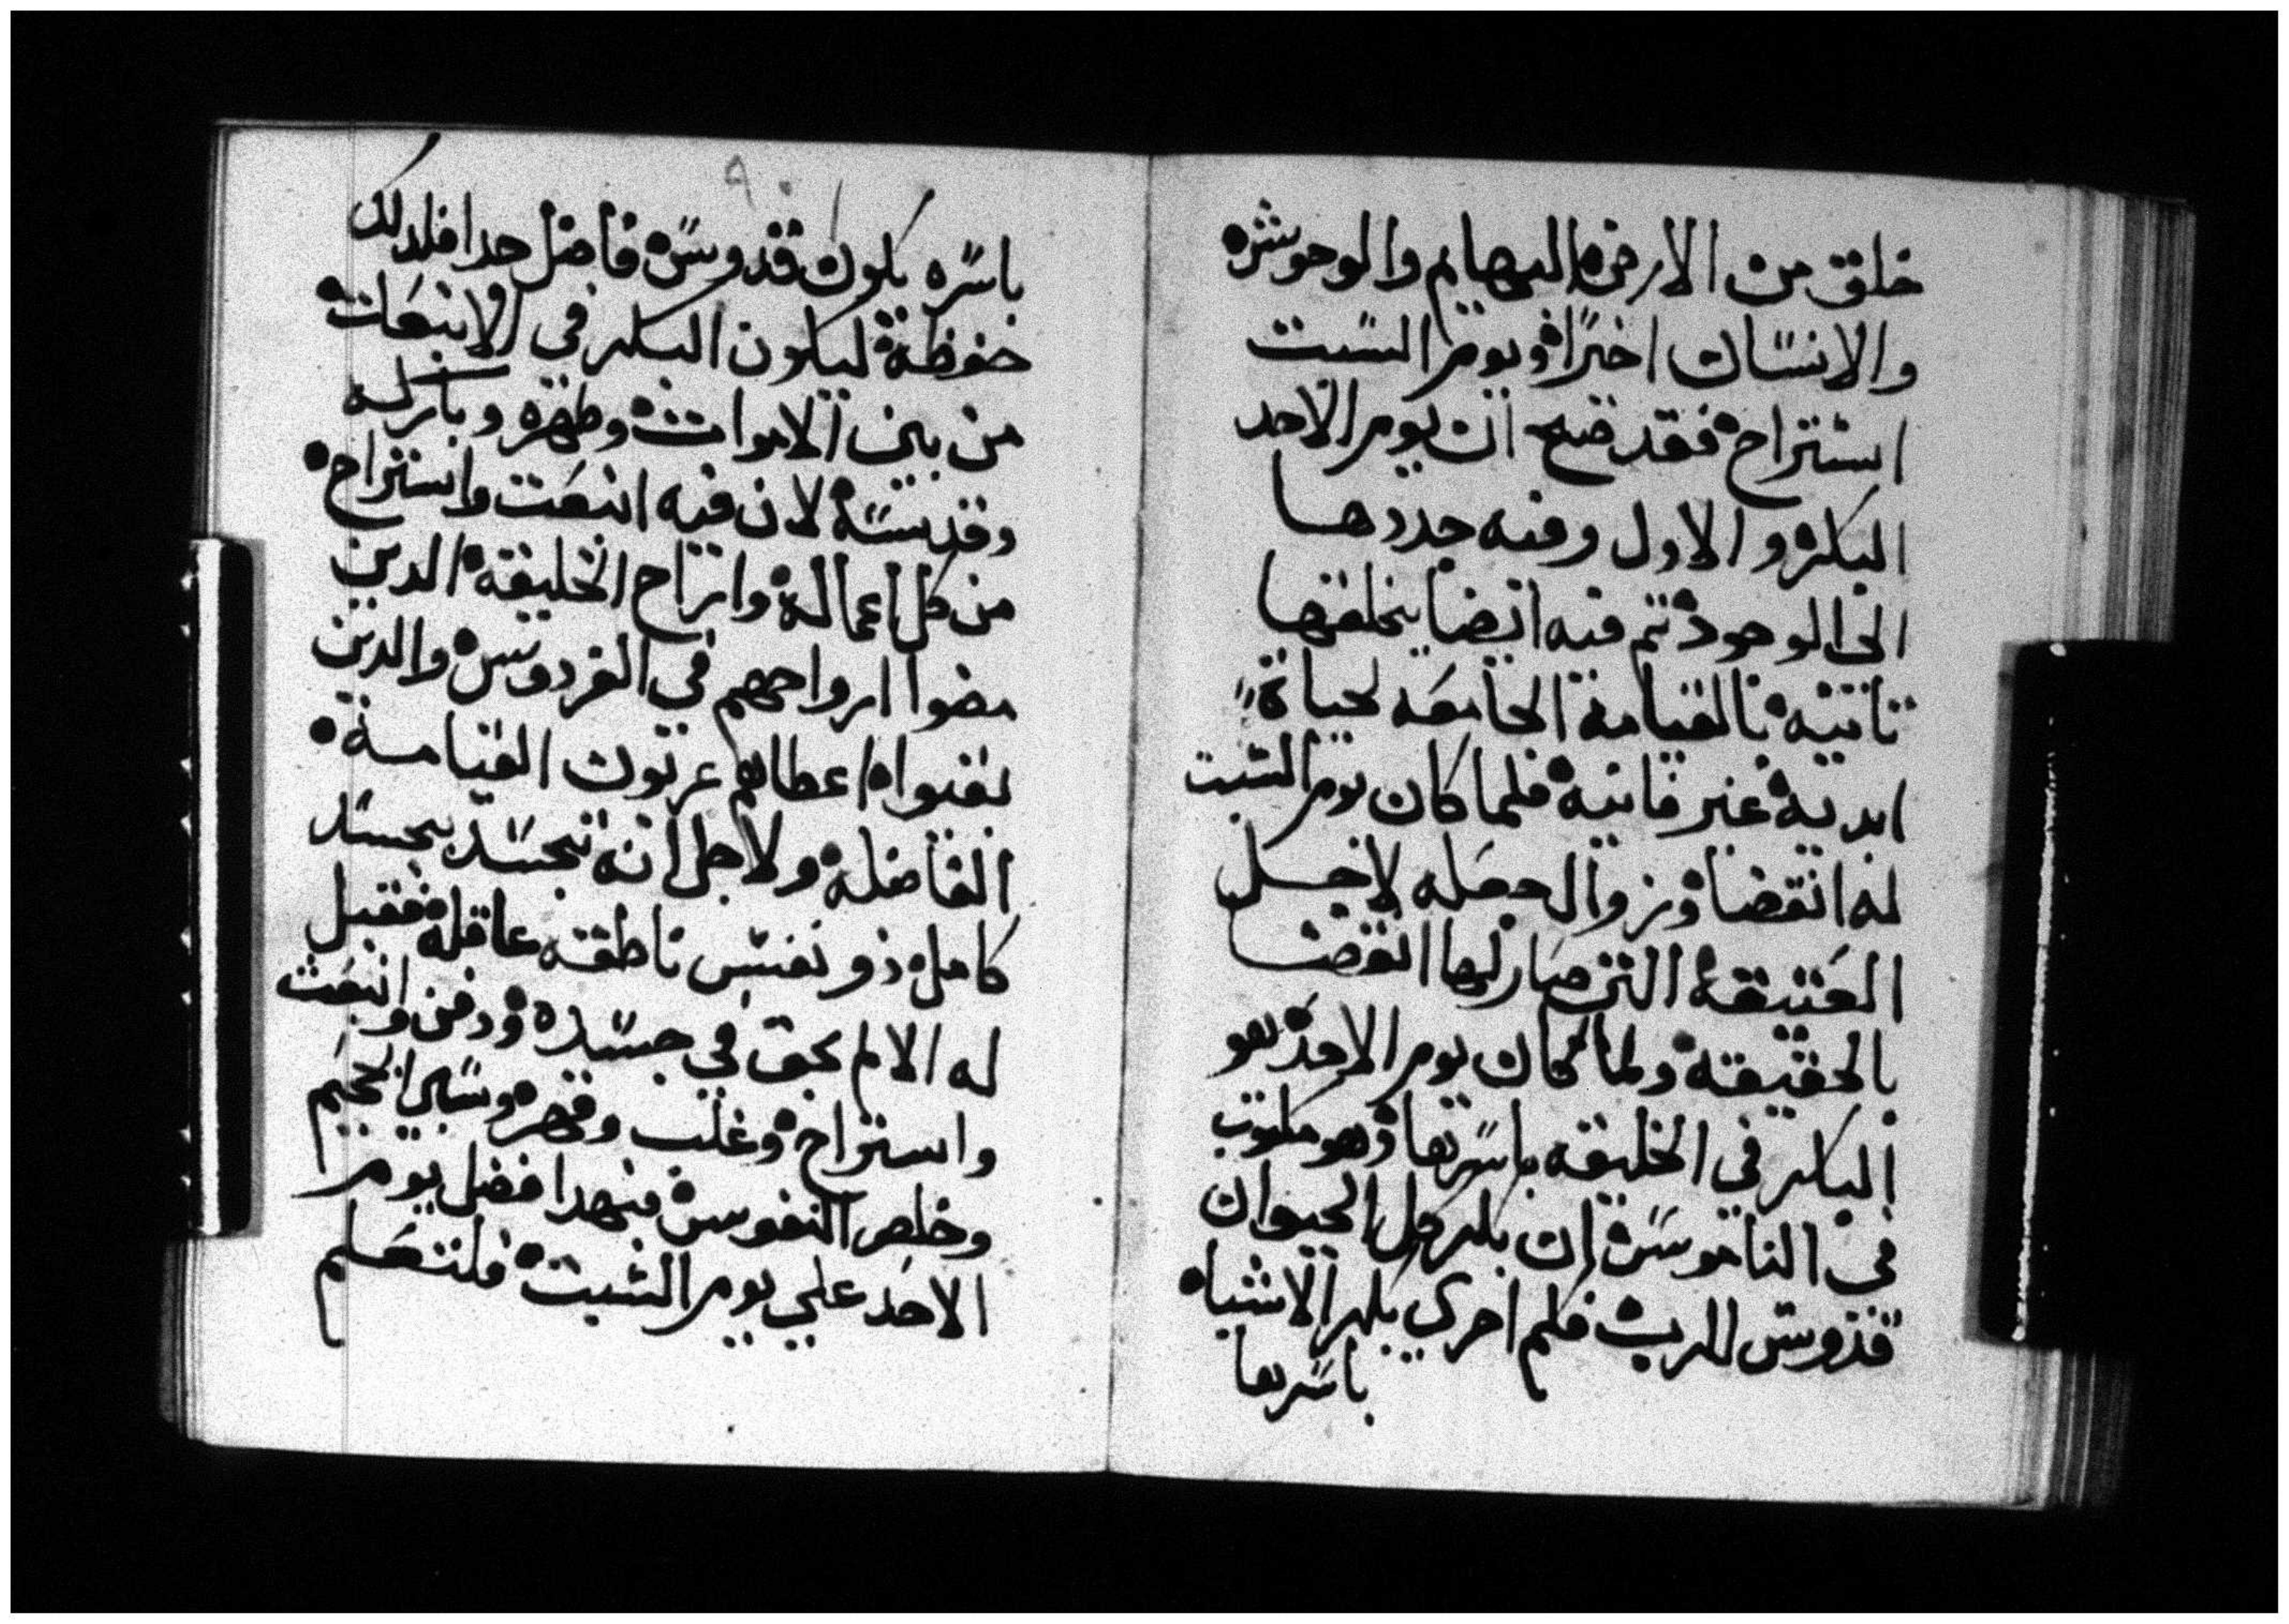 خلق من الارض البهايم والوحوش
والانسان اخيراً ويوم السبت
استراح فقد صح ان يوم الاحد
البكر والاول وفيه جددها
الى الوجود تم فيه ايضا يخلقها
تانيه بالقيامة الجامعه لحياة
ابديه غير فانيه فلما كان يوم السبت
له انقضا وزوال جعله لاجل
العتيقه التي صار لها انقضا
بالحقيقه ولما كان يوم الاحد هو
البكر في الخليقه باسرها وهو مكتوب
في الناموس ان بكر كل الحيوان
قدوس للرب فكم احري بكر الاشياه
باسرها
٩٠
باسره يكون قدوس فاضل جدا فلدلك
حفوظة ليكون البكر في الانبعات
من بين الاموات وطهره وبارله
وقدسه لان فيه انبعت واستراح
من كل اعماله واتراح الخليقة الدين
مضوا ارواحهم في الفردوس والدين
بقيوا اعطاهم عربون القيامة
الفاضله ولاجل انه تجسد بجسد
كامل ذو نفس ناطقه عاقله فقبل
له الالام بحق في جسده ودفن وانبعت
واستراح وغلب وقهر وسبي الجحيم
وخلص النفوس فبهدا افضل يوم
الاحد علي يوم السبت فلنتعلم